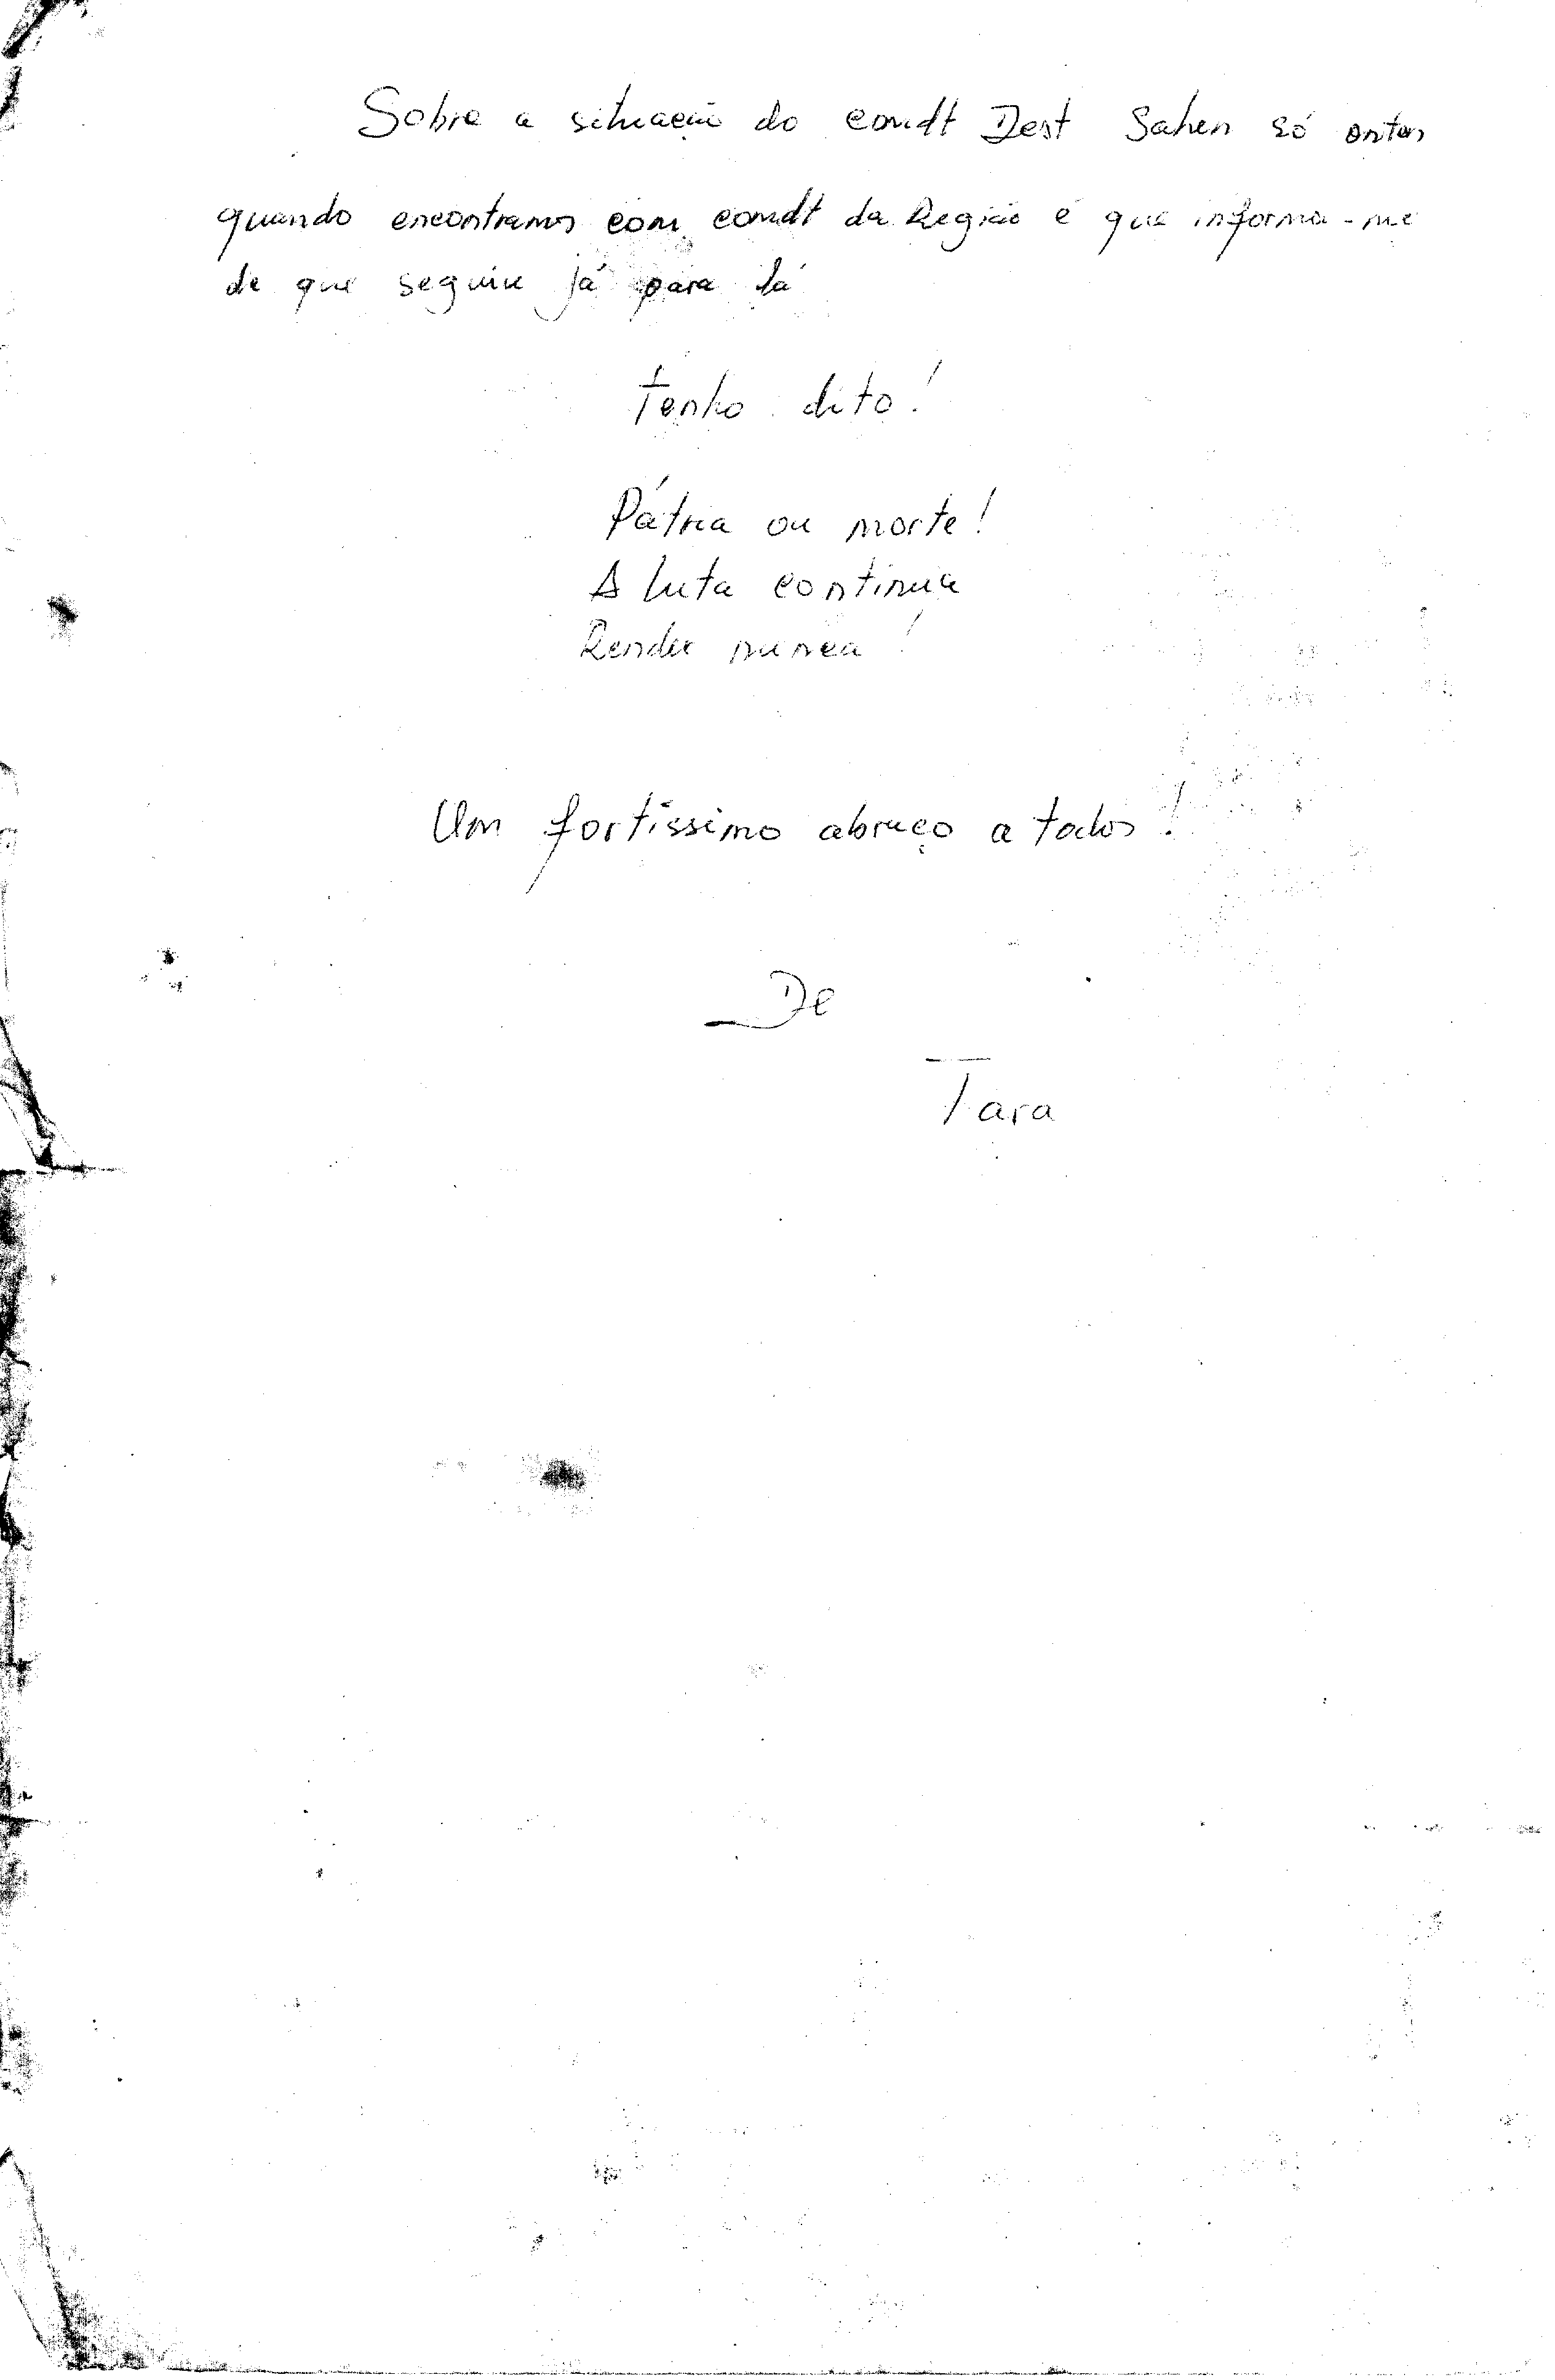 Sobre a situação do comdt Dest Sahen só ontem
quando encontramos com comdt da Região é que informa-me
de que seguiu já para lá
Tenho dito!
Pátria ou morte!
A luta continua
Render nunca!
Um fortíssimo abraço a todos!
De
Tara